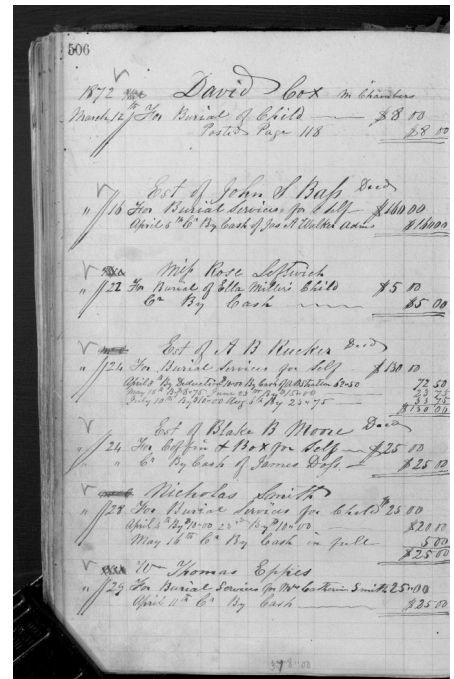 506
1872 David Cox M Chambers
March 12th For Burial of Child — $8 00
Posted Page 118 $8 00
Est of John S Bass Decd
" 16 For Burial Services for Self $160 00
April 8th Cr By Cash of Jas A Walker Admr $160 00
Miss Rose Leftwich
" 22 For Burial of Ella Miller's Child $5 00
Cr By Cash — $5 00
Est of A B Rucker Decd
" 24 For Burial Services for Self $130 00
April 8th By Deduction 10.00 By Cash of 62=50 72 50
May 10th By 8=75 June 23rd By $15=00 23 75
July 10th By 10=00 Aug 6th By 23=75 — 33 75
$130 00
Est of Blake B Moore Decd
" 24 For Coffin & Box for Self — $25 00
" Cr By Cash of James Doss — $25 00
Nicholas Smith
" 28 For Burial Services for Child $25 00
April 5th By $10=00 20th By $10=00 — $20 00
May 16th Cr By Cash in full 5 00
$25 00
Wm Thomas Eppes
" 29 For Burial Services for Mrs Catherin Smith 25=00
April 11th Cr By Cash — $25 00